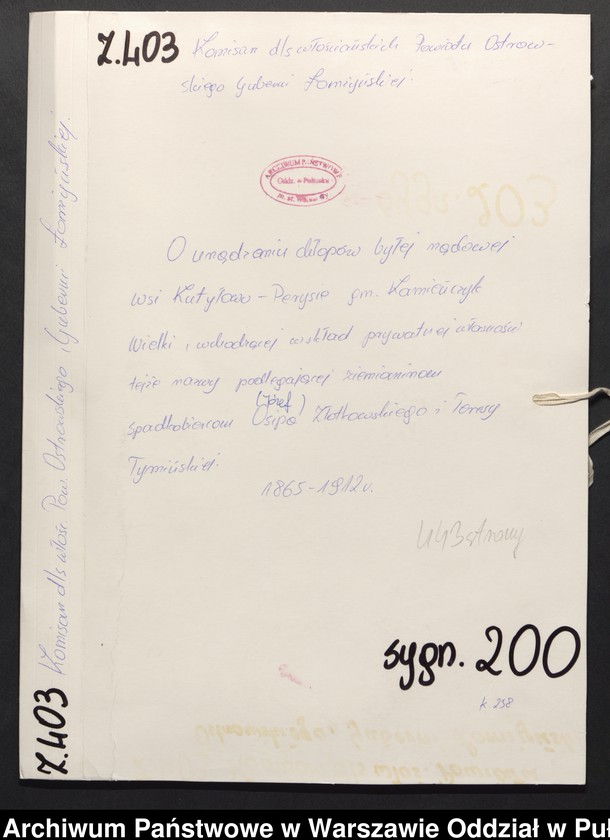 Z.403 Komisarz dls włościańskich Powiatu Ostrow-
skiego Gubernii Łomżyńskiej.
ARCHIWUM PAŃSTWOWE
Oddz. w Pułtusku
m. st. Warszawy
O urządzeniu chłopów byłej rządowej
wsi Kutyłowo-Perysie gm. Kamieńczyk
Wielki, wchodzącej w skład prywatnej własności
tejże nazwy podlegającej ziemianinom
(Józef)
spadkobiercom Osipa Złotkowskiego i Teresy
Tymińskiej.
1865-1912 r.
443 strony
sygn. 200
k. 258
Z.403 Komisarz dls włośc. Pow. Ostrowskiego, Gubernii Łomżyńskiej.
Archiwum Państwowe w Warszawie Oddział w Puł